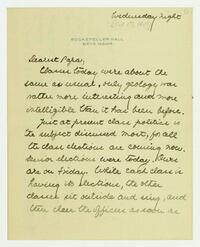 Wednesday night
ROCKEFELLER HALL
BRYN MAWR
Dearest Papa,
Classes today were about the
same as usual, only geology was
rather more interesting and more
intelligible than it has been before.
Just at present class politics is
the subject discussed most, for all
the class elections are coming now.
Senior elections were today. Ours
are on Friday. While each class is
having its elections, the other
classes sit outside and sing, and
then cheer the officers as soon as